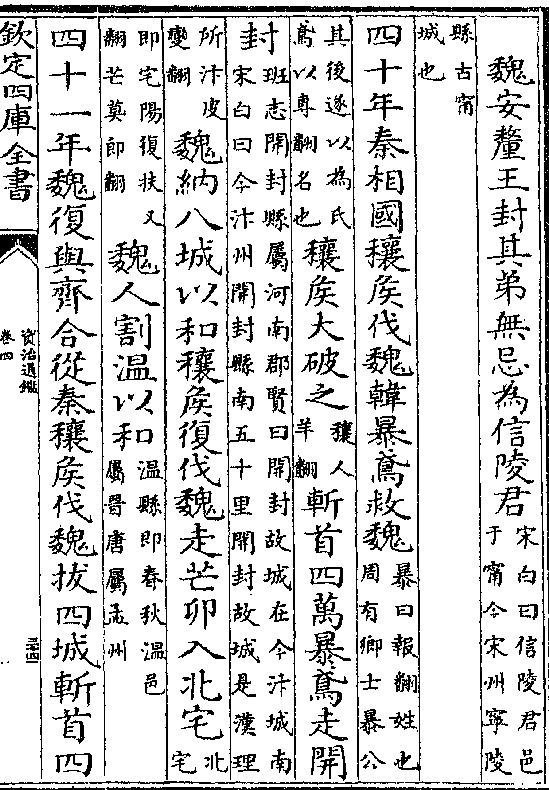 魏安釐王封其弟無忌為信陵君宋白曰信陵君邑于甯今宋州寧陵
縣古甯城也
四十年秦相國穰矦伐魏韓暴鳶救魏暴曰報翻姓也周有卿士暴公
其後遂以為氏鳶以專翻名也穰矦大破之穰人羊翻斬首四萬暴鳶走開
封班志開封縣屬河南郡賢曰開封故城在今汴城南宋白曰今汴州開封縣南五十里開封故城是漢理
所汴皮變翻魏納八城以和穰矦復伐魏走芒卯入北宅北宅
即宅陽復扶又翻芒莫郎翻魏人割温以和温縣即春秋温邑屬晉唐屬孟州
四十一年魏復與齊合從秦穰矦伐魏拔四城斬首四
欽定四庫全書
資治通鑑
卷四
三十四